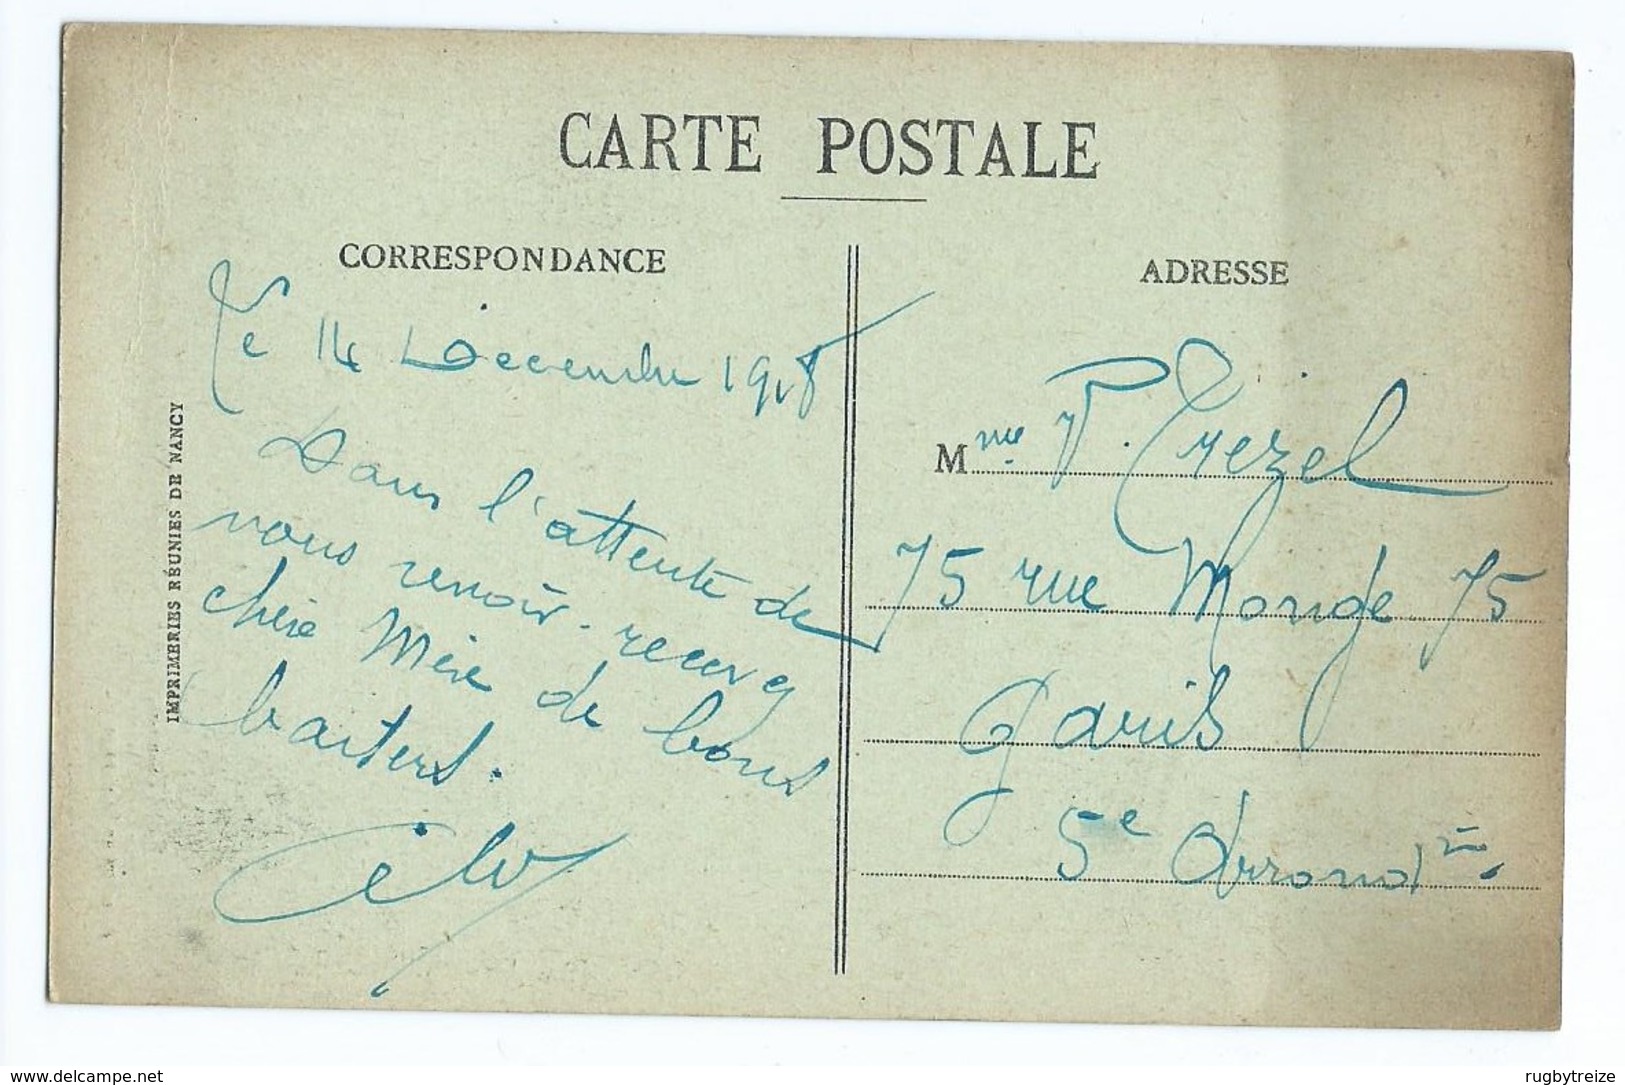 CARTE POSTALE
CORRESPONDANCE
Le 14 Decembre 1918
Dans l'attente de
vous revoir. recevez
chère Mère de bons
baisers.
ADRESSE
Mme P. Trezel
75 rue Monge 75
Paris
5e Arrondt
IMPRIMERIES RÉUNIES DE NANCY
www.delcampe.net
rugbytreize